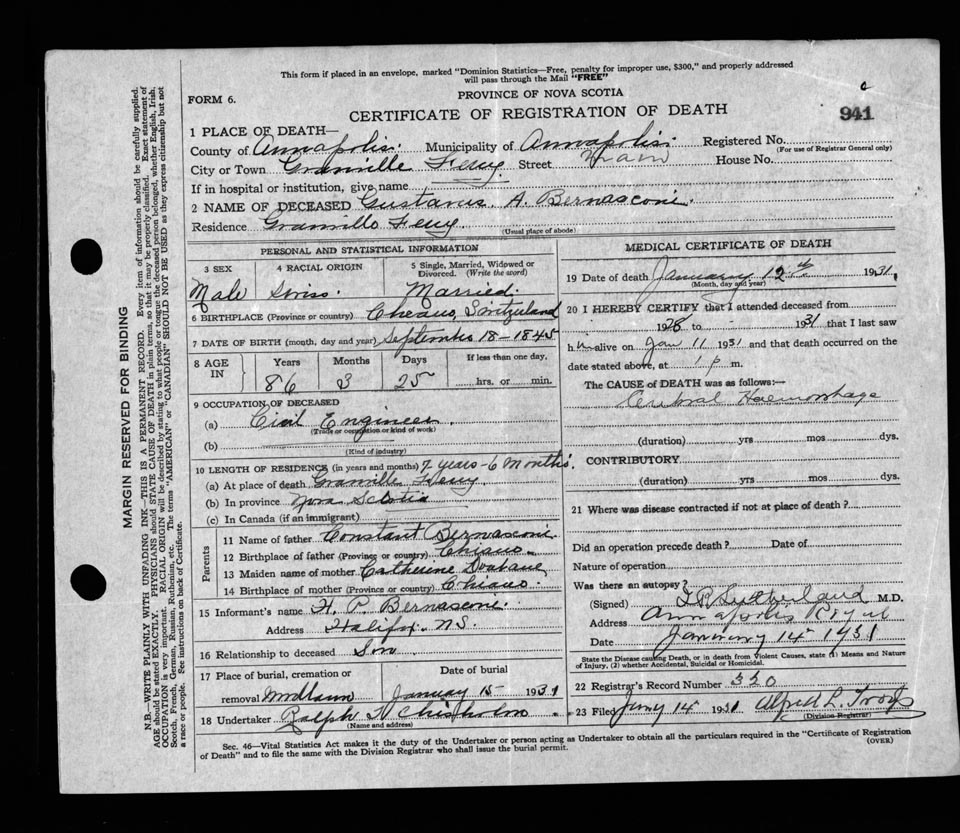 This form if placed in an envelope, marked "Dominion Statistics—Free, penalty for improper use, $300," and properly addressed
will pass through the Mail "FREE"
FORM 6.
PROVINCE OF NOVA SCOTIA
CERTIFICATE OF REGISTRATION OF DEATH
941
1 PLACE OF DEATH—
County of Annapolis. Municipality of Annapolis. Registered No.
(For use of Registrar General only)
City or Town Granville Ferry. Street Main House No.
If in hospital or institution, give name
2 NAME OF DECEASED Gustavus. A. Bernasconi.
Residence Granville Ferry
(Usual place of abode)
PERSONAL AND STATISTICAL INFORMATION
3 SEX
Male
4 RACIAL ORIGIN
Swiss.
5 Single, Married, Widowed or
Divorced. (Write the word)
Married.
6 BIRTHPLACE (Province or country) Switzerland
7 DATE OF BIRTH (month, day and year) September 18-1845
8 AGE
IN
Years
86
Months
3
Days
25
If less than one day.
hrs. or min.
9 OCCUPATION OF DECEASED
(a) Civil Engineer.
(Trade or occupation or kind of work)
(b)
(Kind of industry)
10 LENGTH OF RESIDENCE (in years and months) 7 years-6 months.
(a) At place of death Granville Ferry
(b) In province Nova Scotia
(c) In Canada (if an immigrant)
Parents
11 Name of father Constant Bernasconi.
12 Birthplace of father (Province or country)
13 Maiden name of mother Catherine
14 Birthplace of mother (Province or country)
15 Informant's name H. P. Bernasconi.
Address Halifax. N.S.
16 Relationship to deceased Son
17 Place of burial, cremation or
removal
Date of burial
January 15- 1931
18 Undertaker Ralph Chisholm
(Name and address)
MEDICAL CERTIFICATE OF DEATH
19 Date of death January 12th 1931
(Month, day and year)
20 I HEREBY CERTIFY that I attended deceased from
1928 to - 1931 that I last saw
him alive on Jan 11 1931 and that death occurred on the
date stated above, at 1 p m.
The CAUSE of DEATH was as follows:—
Cerebral Haemorrhage
(duration) yrs mos dys.
CONTRIBUTORY
(duration) yrs mos dys.
21 Where was disease contracted if not at place of death?
Did an operation precede death? Date of
Nature of operation
Was there an autopsy?
(Signed) Sutherland M.D.
Address Annapolis Royal
Date January 14 1931
State the Disease causing Death, or in death from Violent Causes, state (1) Means and Nature
of Injury, (2) whether Accidental, Suicidal or Homicidal.
22 Registrar's Record Number 330
23 Filed Jany 14 1931 Alfred L. Troop
(Division Registrar)
Sec. 46—Vital Statistics Act makes it the duty of the Undertaker or person acting as Undertaker to obtain all the particulars required in the "Certificate of Registration
of Death" and to file the same with the Division Registrar who shall issue the burial permit.
(OVER)
MARGIN RESERVED FOR BINDING
N.B.—WRITE PLAINLY WITH UNFADING INK—THIS IS A PERMANENT RECORD. Every item of information should be carefully supplied.
AGE should be stated EXACTLY. PHYSICIANS should STATE CAUSE OF DEATH in plain terms, so that it may be properly classified. Exact statement of
OCCUPATION is very important. RACIAL ORIGIN will be described by stating to what people or tongue the deceased person belonged, whether English, Irish,
Scotch, French, German, Russian, Ruthenian, etc. The terms "AMERICAN" or "CANADIAN" SHOULD NOT BE USED as they express citizenship but not
a race or people. See instructions on back of Certificate.